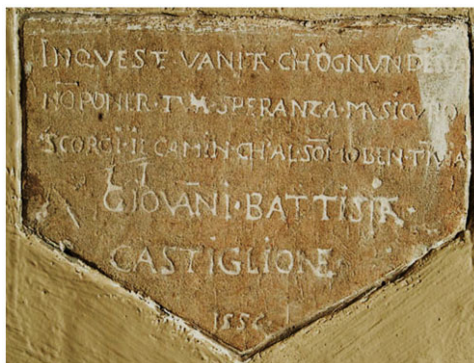 IN QVESTE VANITA CH'OGNVN DESI
NŌ PONER TVA SPERANZA MA SICVRO
SCORGI IL CAMIN CH'AL SŌMO BEN T'IVIA
GIOVĀNI·BATTISTA·
CASTIGLIONE·
1556·